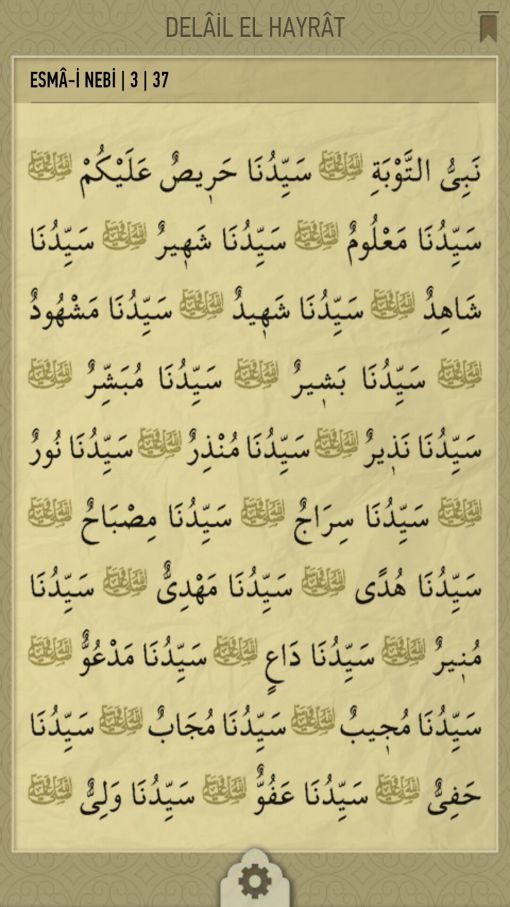 DELÂİL EL HAYRÂT
ESMÂ-İ NEBİ | 3 | 37
نَبِىُّ التَّوْبَةِ ﷺ سَيِّدُنَا حَرٖيصٌ عَلَيْكُمْ ﷺ
سَيِّدُنَا مَعْلُومٌ ﷺ سَيِّدُنَا شَهٖيرٌ ﷺ سَيِّدُنَا
شَاهِدٌ ﷺ سَيِّدُنَا شَهٖيدٌ ﷺ سَيِّدُنَا مَشْهُودٌ
ﷺ سَيِّدُنَا بَشٖيرٌ ﷺ سَيِّدُنَا مُبَشِّرٌ ﷺ
سَيِّدُنَا نَذٖيرٌ ﷺ سَيِّدُنَا مُنْذِرٌ ﷺ سَيِّدُنَا نُورٌ
ﷺ سَيِّدُنَا سِرَاجٌ ﷺ سَيِّدُنَا مِصْبَاحٌ ﷺ
سَيِّدُنَا هُدًى ﷺ سَيِّدُنَا مَهْدِىٌّ ﷺ سَيِّدُنَا
مُنٖيرٌ ﷺ سَيِّدُنَا دَاعٍ ﷺ سَيِّدُنَا مَدْعُوٌّ ﷺ
سَيِّدُنَا مُجٖيبٌ ﷺ سَيِّدُنَا مُجَابٌ ﷺ سَيِّدُنَا
حَفِىٌّ ﷺ سَيِّدُنَا عَفُوٌّ ﷺ سَيِّدُنَا وَلِىٌّ ﷺ